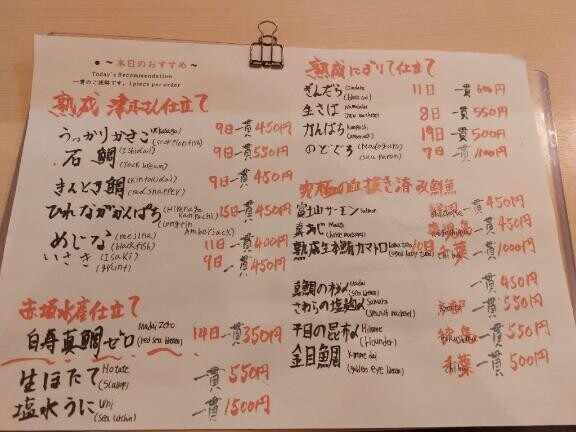 ~本日のおすすめ~
Today's Recommendation
一貫のご提供です。1piece per order
熟成 津本さん仕立て
うっかりかさご (Scorpionfish) 9日 一貫 450円
石鯛 (Ishidai) (rock bream) 9日 一貫 550円
きんとき鯛 (kintokidai) (red snapper) 9日 一貫 450円
ひれながかんぱち (Hirenaga kanpachi) (longfin Amberjack) 15日 一貫 450円
めじな (mejina) (blackfish) 11日 一貫 400円
いさき (Isaki) (grunt) 9日 一貫 450円
赤坂水産仕立て
白寿真鯛ゼロ Madai zero (red sea bream) 14日 一貫 350円
生ほたて Hotate (Scallop) 一貫 550円
塩水うに Uni (Sea urchin) 一貫 1500円
熟成にぎりて仕立て
ぎんだら (black cod) 11日 一貫 600円
生さば 8日 一貫 550円
かんぱち (kanpachi) 19日 一貫 500円
のどぐろ (Nodoguro) (sea perch) 7日 一貫 1100円
究極の血抜き済み鮮魚
富士山サーモン Salmon 静岡 一貫 450円
真あじ 一貫 450円
熟成生本鮪カマトロ 10日 千葉 一貫 1000円
真鯛の Madai (Sea bream) 一貫 450円
さわらの塩麹〆 Sawara 一貫 550円
平目の昆布〆 Hirame (flounder) 一貫 550円
金目鯛 kinme dai (golden eye bream) 千葉 一貫 500円